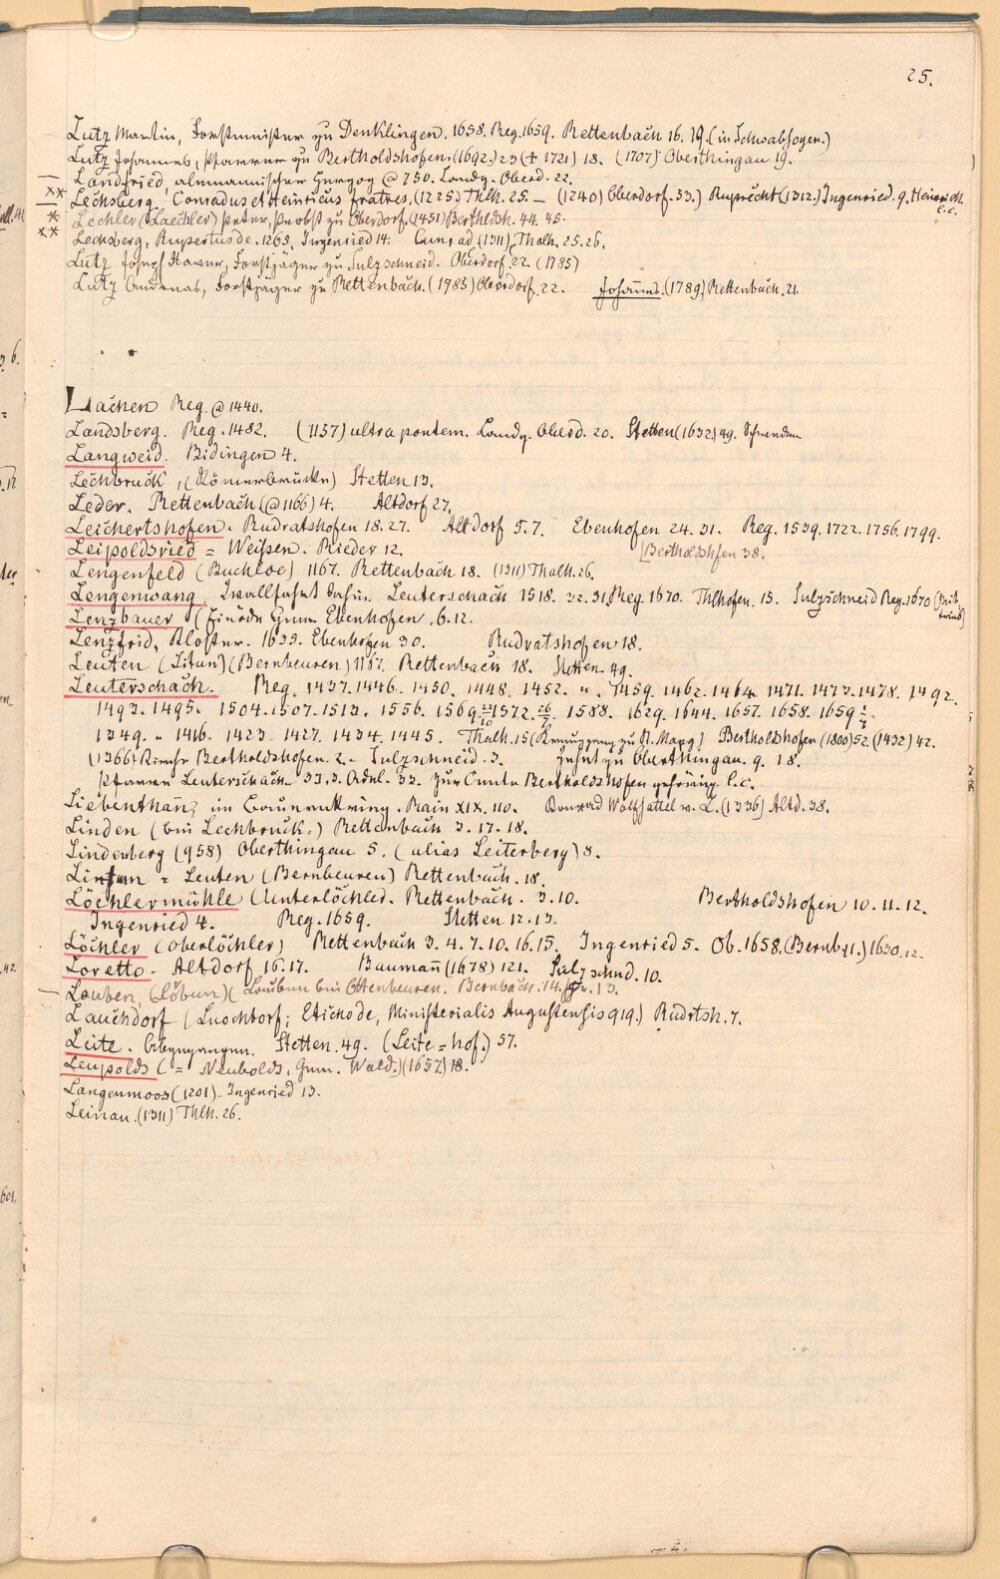 25.
Lutz Martin, Forstmeister zu Denklingen. 1658. Reg. 1659. Rettenbach 16. 19. (in Schwabsogen.)
Lutz Johannes, Pfarrer zu Bertholdshofen. (1692.) 23 († 1721) 18. (1707) Oberthingau 19.
Landfried, alemannischer Herzog @ 750. Landg. Oberd. 22.
Lechsberg. Conradus et Heinricus fratres, (1225.) Thlh. 25. – (1240) Oberdorf. 53.) Ruprecht (1312.) Ingenried. 9. Heinrich. l.c.
Lechler (Laechler) Peter, Probst zu Oberdorf. (1451) Berthldsh. 44. 45.
Lechsberg, Rupertus de. 1265. Ingenried 14. Cunrad (1311) Thalh. 25. 26.
Lutz Josef Xaver, Forstjäger zu Sulzschneid. Oberdorf. 22. (1785)
Lutz Andreas, Forstjäger zu Rettenbach. (1785) Oberdorf. 22. Johannes. (1789) Rettenbach. 21
Lachen Reg. @ 1440.
Landsberg. Reg. 1482. (1157) ultra pontem. Landg. Oberd. 20. Stetten (1632) 49. Schweden
Langweid. Bidingen 4.
Lechbruck, (Römerbrücke) Stetten 13.
Leder. Rettenbach (@ 1166) 4. Altdorf 27.
Leichertshofen. Rudratshofen 18. 27. Altdorf 5. 7. Ebenhofen 24. 31. Reg. 1539. 1722. 1756. 1799.
Leipoldsried = Weißen. Rieder 12. Bertholdshfen 38.
Lengenfeld (Buchloe) 1167. Rettenbach 18. (1311) Thalh. 26.
Lengenwang, Wallfahrt dahin. Leuterschach 1518. 32. 31. Reg. 1670. Thlhofen. 15. Sulzschneid Reg. 1670
Lenzbauer (Einöde Gem. Ebenhofen. 6. 12.
Lenzfrid, Kloster. 1635. Ebenhofen 30. Rudratshofen 18.
Leuten (Litun) (Bernbeuren) 1167. Rettenbach 18. Stetten. 49.
Leuterschach. Reg. 1437. 1446. 1450. 1448. 1452. " . 1459. 1462. 1464. 1471. 1473. 1478. 1492.
1493. 1495. 1504. 1507. 1513. 1556. 1569 1572. 1588. 1629. 1644. 1657. 1658. 1659
1349. " 1416. 1423. 1427. 1434. 1445. Thalh. 15 (Kreuzgang zu St. Mang) Bertholdshofen (1800) 52. (1432) 42.
(1366) Kirche Bertholdshofen. 2. – Sulzschneid. 3. Zehnt zu Oberthingau. 9. 18.
Pfarrer Leuterschach. 33. 3. Adnl. 33. zur Curte Bertholdshofen gehörig. l.c.
Liebenthan, im Baumann. Main XIX. 110. Konrad Wolfsattel v. L. (1336) Altd. 38.
Linden (bei Lechbruck.) Rettenbach 3. 17. 18.
Lindenberg (958) Oberthingau 5. (alias Leiterberg) 8.
Lintun = Leuten (Bernbeuren) Rettenbach. 18.
Löchlermühle (Unterlöchler. Rettenbach. 3. 10. Bertholdshofen 10. 11. 12.
Ingenried 4. Reg. 1659. Stetten 12. 13.
Löchler (Oberlöchler) Rettenbach 3. 4. 7. 10. 16. 15. Ingenried 5. Ob. 1658. (Bernb. 1.) 1630. 12.
Loretto. Altdorf 16. 17. Baumañ (1678) 121. Sulzschnd. 10.
Lauben, (Löbun) (Lauben bei Ottenbeuren. Bernbach. 14. 13.
Lauchdorf (Luochdorf; Etichode, Ministerialis Augustensis 919.) Rudrtsh. 7.
Leite. Stetten. 49. (Leite = hof.) 57.
Leupolds (= Neubolds, Gem. Wald.) (1657) 18.
Langenmoos (1201) – Ingenried 13.
Leinau. (1311) Thlh. 26.